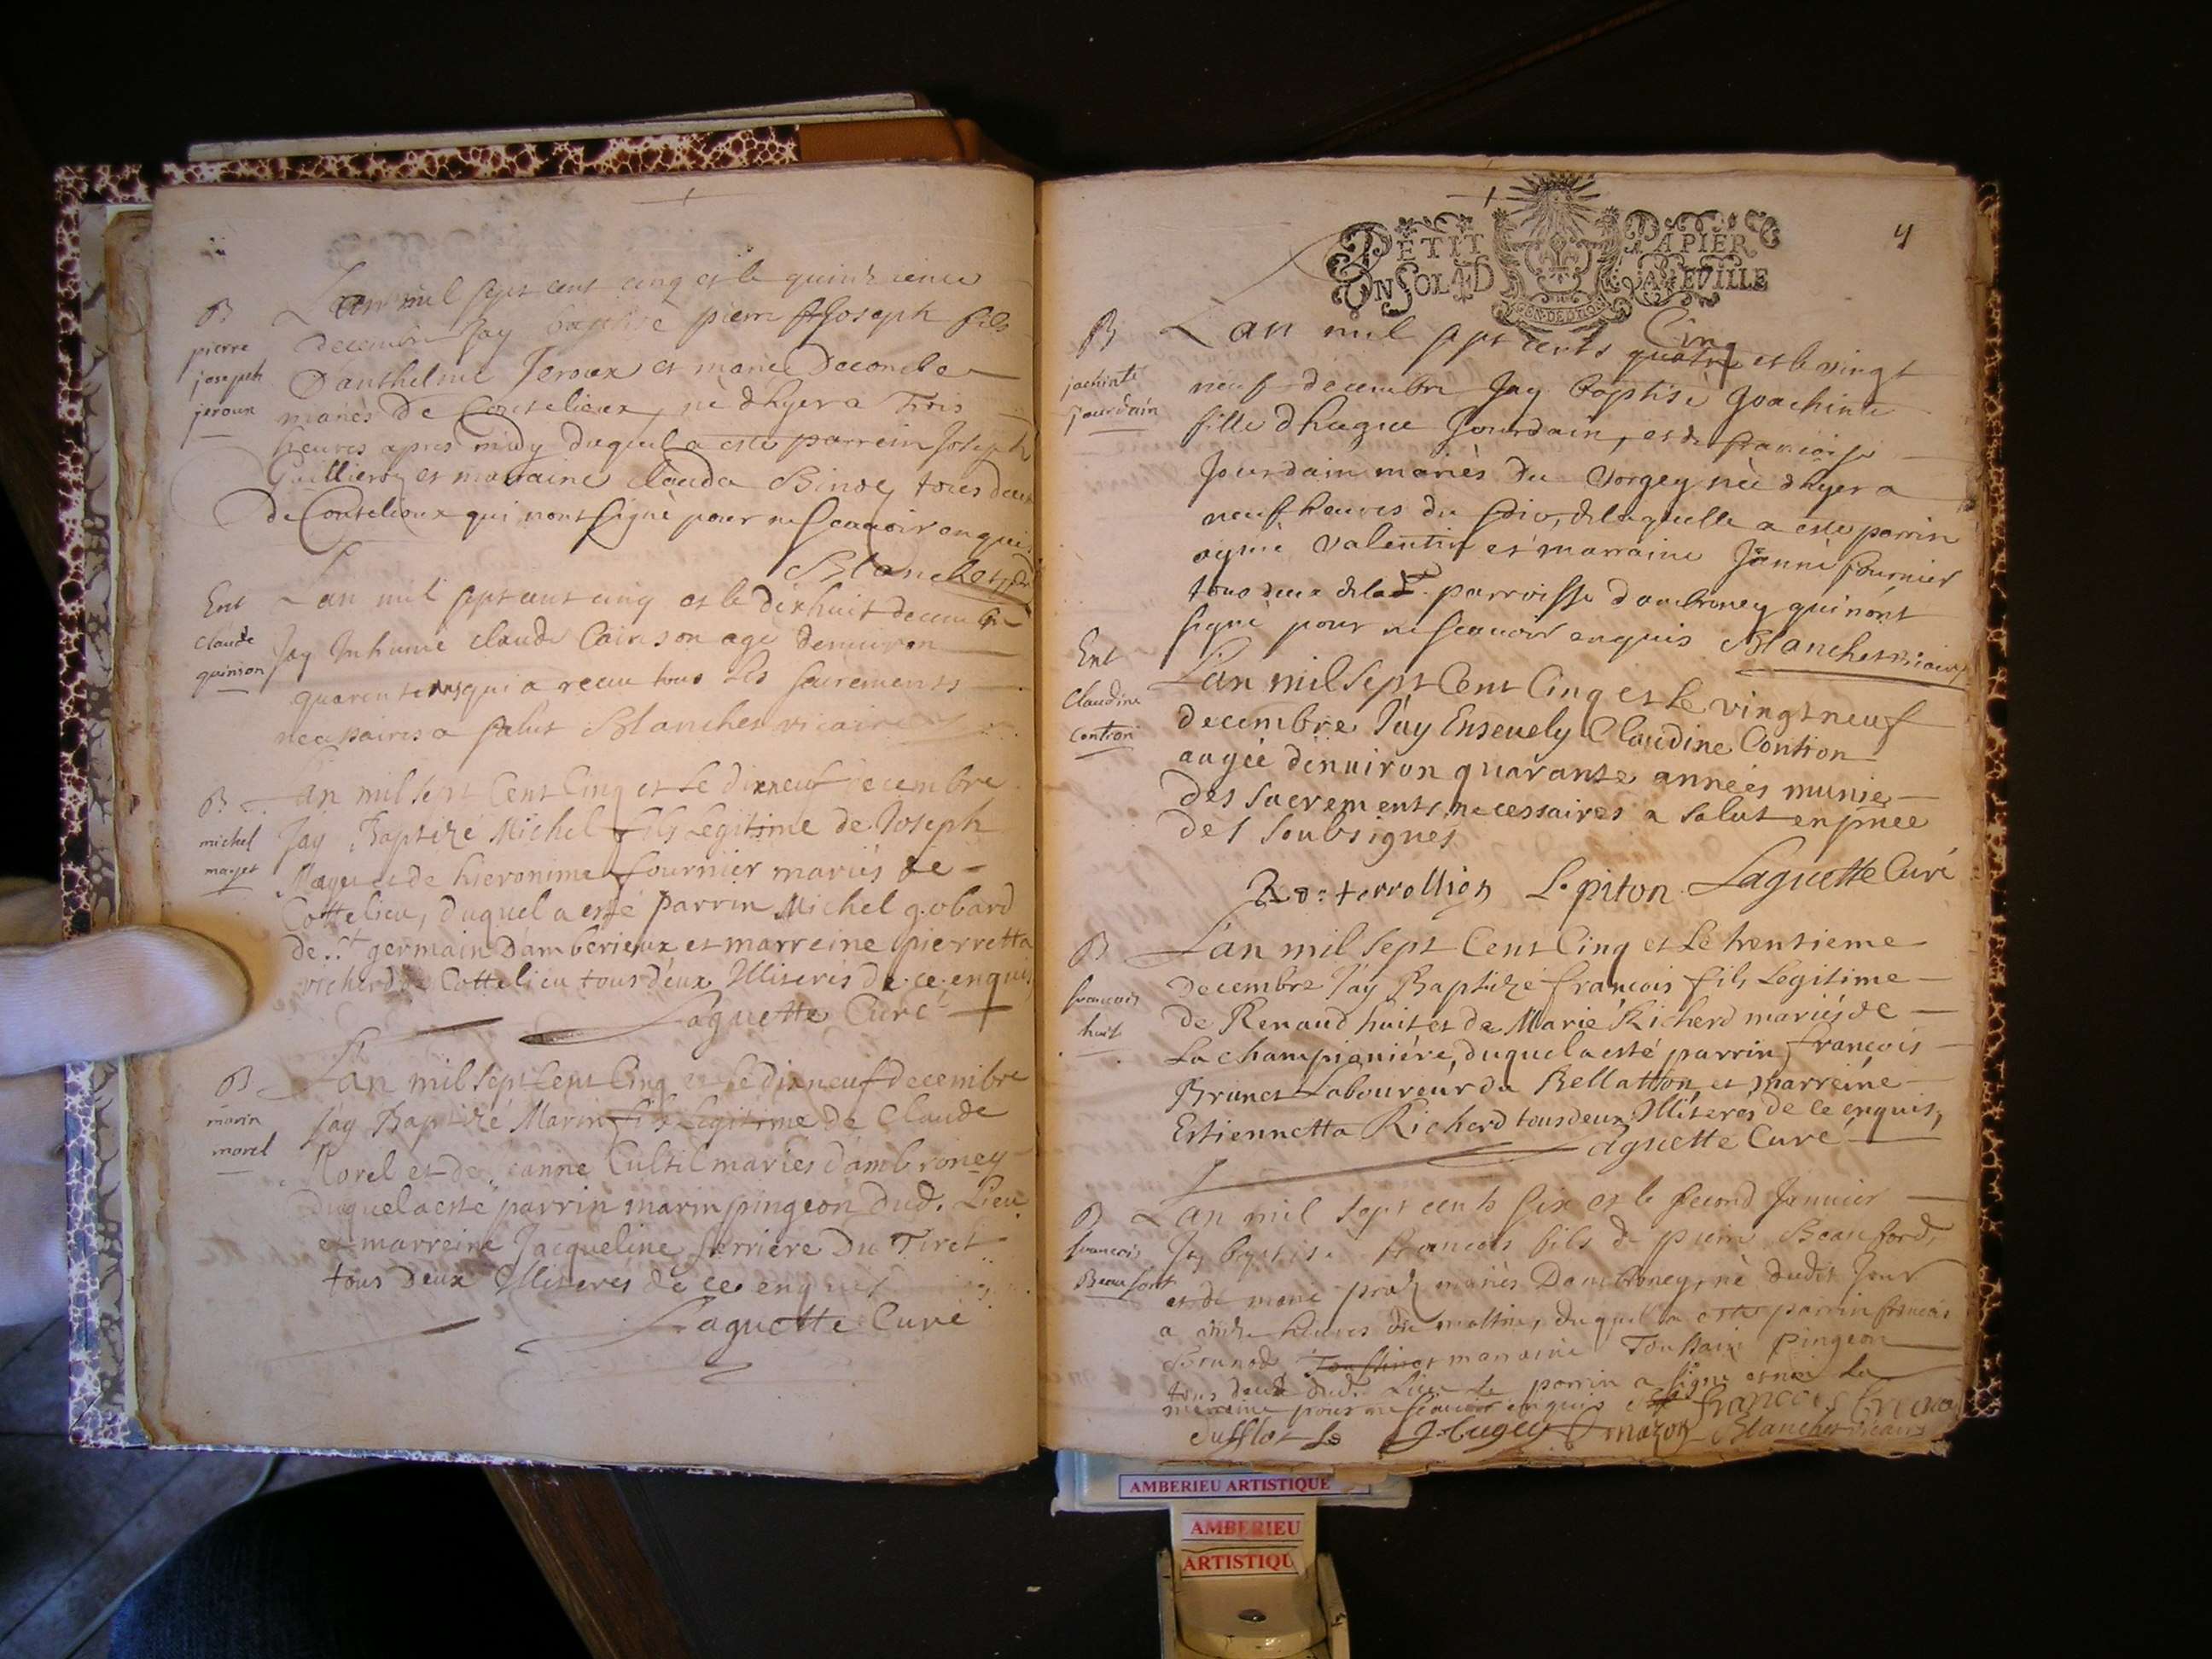 B
pierre
joseph
jeroux
L'an mil sept cent cinq et le quinzieme
decembre Jay baptisé pierre Joseph fils
D'anthelme Jeroux et marie Decomble
mariés De Coutelieux, né dhyer a trois
heures apres midy duquel a esté parrein Joseph
Guillieroz et marraine Clauda Binoz tous deux
de Coutelieux qui nont signé pour ne scauoir enquis
Blanchet
Ent
Claude
quinson
L'an mil sept cent cinq et le dixhuit decembre
Jay Inhumé claude Cainson agé denuiron
quarente ans qui a receu tous les sacrements
necessaires a salut Blanchet vicaire
B
michel
majet
L'an mil sept Cent Cinq et Le dixneuf decembre
Jay Baptizé Michel fils Legitime de Joseph
Magnet et de hieronime fournier mariés de
Cottelieu, duquel a esté parrin Michel gobard
de St germain Damberieux et marreine pierretta
richerd de Cottelieu tous deux Illiterés de ce enquis
Laguette Curé
B
marin
morel
L'an mil Sept Cent Cinq et Le dixneuf decembre
J'ay Baptizé Marin fils Legitime de Claude
Morel et de Jeanne Cultil mariés d'ambroney
duquel a esté parrin marin pingeon dud. Lieu
et marreine Jacqueline ferriere Du Tiret
tous Deux Illiterés de ce enquis
Laguette Curé
PETIT PAPIER
UN SOL 4 D LA FEVILLE
4
B
jachinte
jourdain
L'an mil sept cents quatre Cinq et le vingt
neuf decembre Jay baptisé Joachinte
fille dhugue Jourdain, et de francoise
Jourdain mariés du Vorgey née dhyer a
neuf heures du soir, de laquelle a esté parrin
aymé Valentin et marraine Janne fournier
tous deux de lad. parroisse dambroney qui nont
signé pour ne scauoir enquis Blanchet vicaire
Ent
Claudine
Contion
L'an mil Sept Cent Cinq et Le vingtneuf
decembre J'ay Enseuely Claudine Contion
aagée d'enuiron quarante années munie
des sacrements necessaires a salut en pnce
des soubsignes
terrollion L. piton Laguette Curé
B
francois
huit
L'an mil Sept Cent Cinq et Le trentieme
decembre J'ay Baptizé francois fils Legitime
de Renaud huit et de Marie Richerd mariés de
La championiére, duquel a esté parrin francois
Brunet Laboureur du Bellatton et marreine
Estiennetta Richerd tous deux Illiterés de ce enquis,
Laguette Curé
B
francois
Beaufort
L'an mil sept cents six et le second Januier
Jay baptisé francois fils de pierre Beauford,
et de marie praz mariés Dambroney, né dudit Jour
a heures du mattin, duquel a esté parrin francois
Brunod et marraine Toussain pingeon
tous deux dud. Lieu Le parrin a signé et non La
marraine pour ne scauoir enquis francois
Blanchet vicaire
AMBERIEU ARTISTIQUE
AMBERIEU
ARTISTIQU